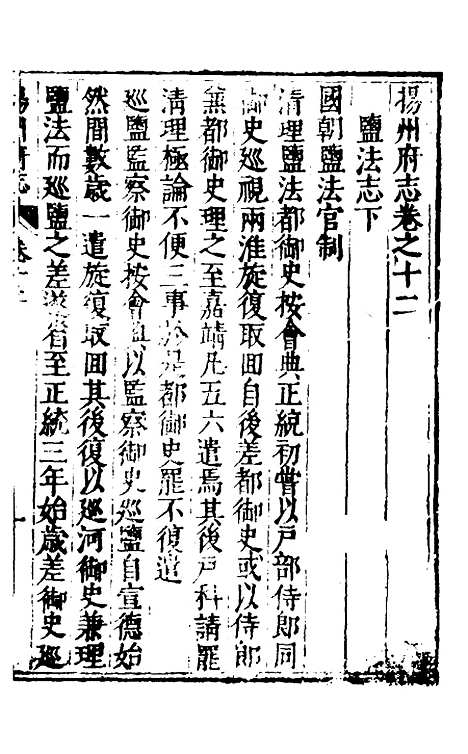 揚州府志卷之十二
鹽法志下
國朝鹽法官制
清理鹽法都御史按會典正統初嘗以戶部侍郎同
御史巡視兩淮旋復取回自後差都御史或以侍郎
兼都御史理之至嘉靖凡五六遣焉其後戶科請罷
清理極論不便三事於是都御史罷不復遣
巡鹽監察御史按會典以監察御史巡鹽自宣德始
然間數歲一遣旋復取回其後復以巡河御史兼理
鹽法而巡鹽之差遂省至正統三年始歲差御史巡
揚州府志 卷十二 一